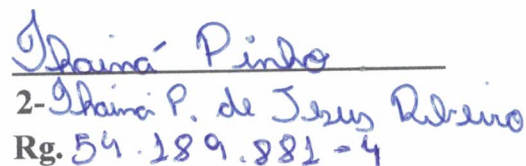 Thainá Pinho
2- Thainá P. de Jesus Ribeiro
Rg. 54.189.881-4